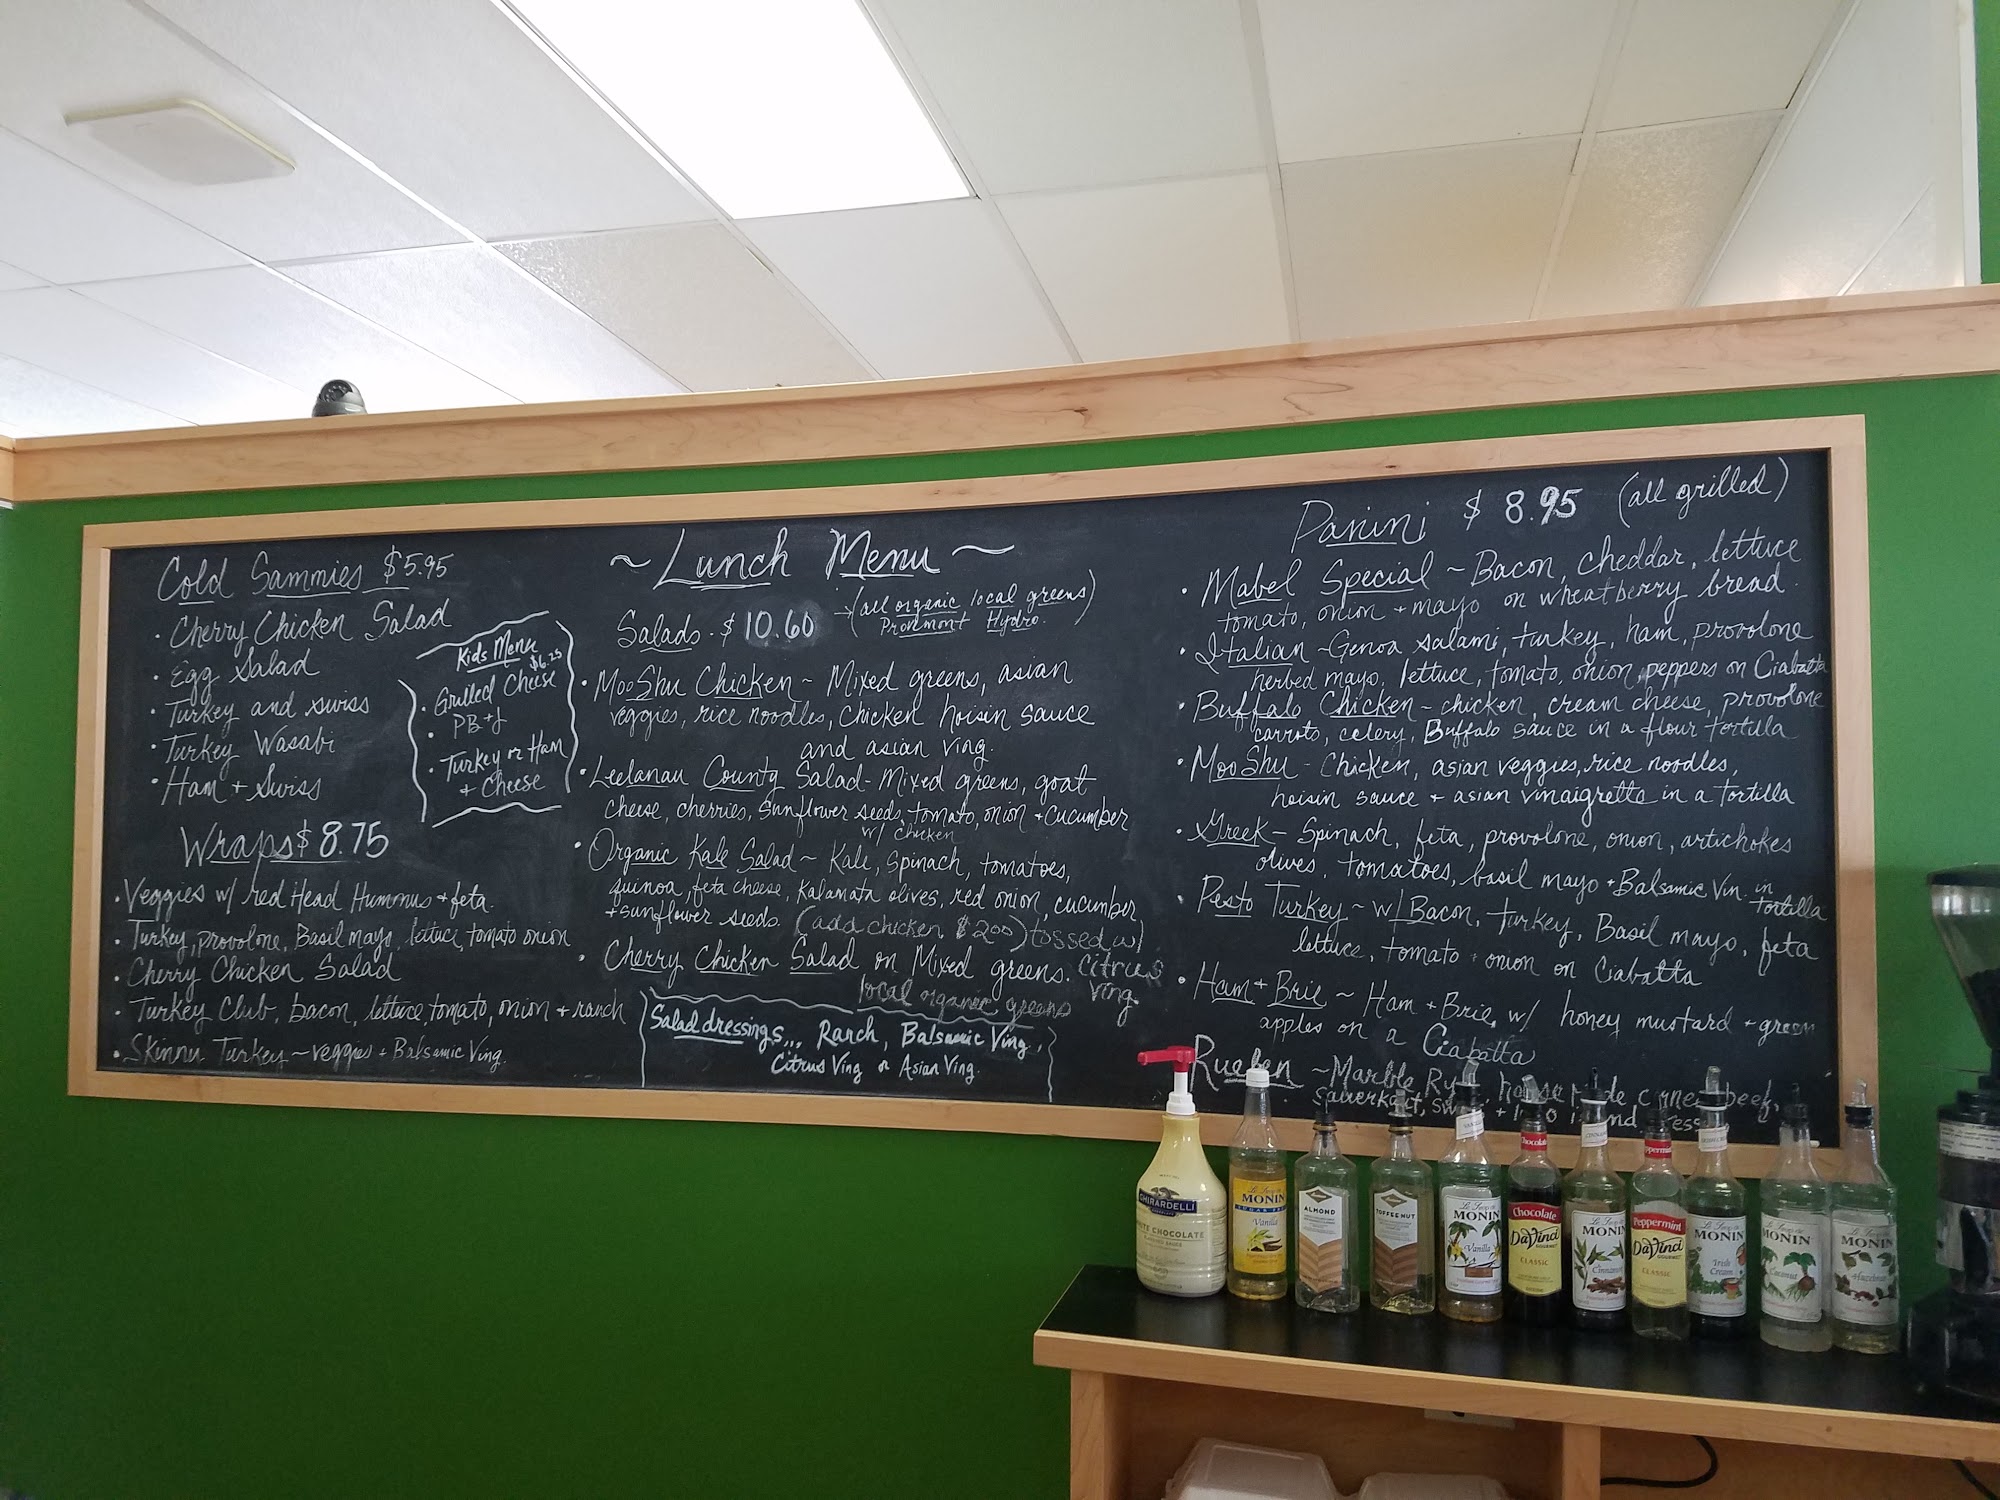 Cold Sammies $5.95
• Cherry Chicken Salad
• Egg Salad
• Turkey and swiss
• Turkey Wasabi
• Ham + Swiss
Kids Menu
$6.25
• Grilled Cheese
• PB+J
• Turkey or Ham
+ Cheese
Wraps $8.75
• Veggies w/ red Head Hummus + feta.
• Turkey, provolone, Basil mayo, lettuce, tomato onion
• Cherry Chicken Salad
• Turkey Club, bacon, lettuce, tomato, onion + ranch
• Skinny Turkey ~ veggies + Balsamic Ving.
~ Lunch Menu ~
Salads - $10.60
(all organic local greens)
Hydro.
• MooShu Chicken ~ Mixed greens, asian
veggies, rice noodles, chicken hoisin sauce
and asian ving.
• Leelanau County Salad - Mixed greens, goat
cheese, cherries, sunflower seeds, tomato, onion + cucumber
w/ chicken
• Organic Kale Salad ~ Kale, Spinach, tomatoes,
quinoa, feta cheese, Kalamata olives, red onion, cucumber
+ sunflower seeds. (add chicken $2.00) tossed w/
citrus
ving.
• Cherry Chicken Salad on Mixed greens.
local organic greens
Salad dressings... Ranch, Balsamic Ving,
Citrus Ving or Asian Ving.
Panini $8.95 (all grilled)
• Mabel Special ~ Bacon, cheddar, lettuce
tomato, onion + mayo on wheatberry bread.
• Italian ~ Genoa salami, turkey, ham, provolone
herbed mayo, lettuce, tomato, onion, peppers on Ciabatta
• Buffalo Chicken - chicken, cream cheese, provolone
carrots, celery, Buffalo sauce in a flour tortilla
• MooShu - Chicken, asian veggies, rice noodles,
hoisin sauce + asian vinaigrette in a tortilla
• Greek - Spinach, feta, provolone, onion, artichokes
olives, tomatoes, basil mayo + Balsamic Vin. in
tortilla
• Pesto Turkey ~ w/ Bacon, turkey, Basil mayo, feta
lettuce, tomato + onion on Ciabatta
• Ham + Brie ~ Ham + Brie, w/ honey mustard + green
apples on a Ciabatta
Rueben ~ Marble Rye, beef,
GHIRARDELLI
CHOCOLATE
MONIN
Vanilla
ALMOND
TOFFEENUT
MONIN
Vanilla
Chocolate
Chocolate
DaVinci
GOURMET
CLASSIC
MONIN
Cinnamon
Peppermint
DaVinci
GOURMET
CLASSIC
MONIN
Irish
Cream
MONIN
Coconut
MONIN
Hazelnut